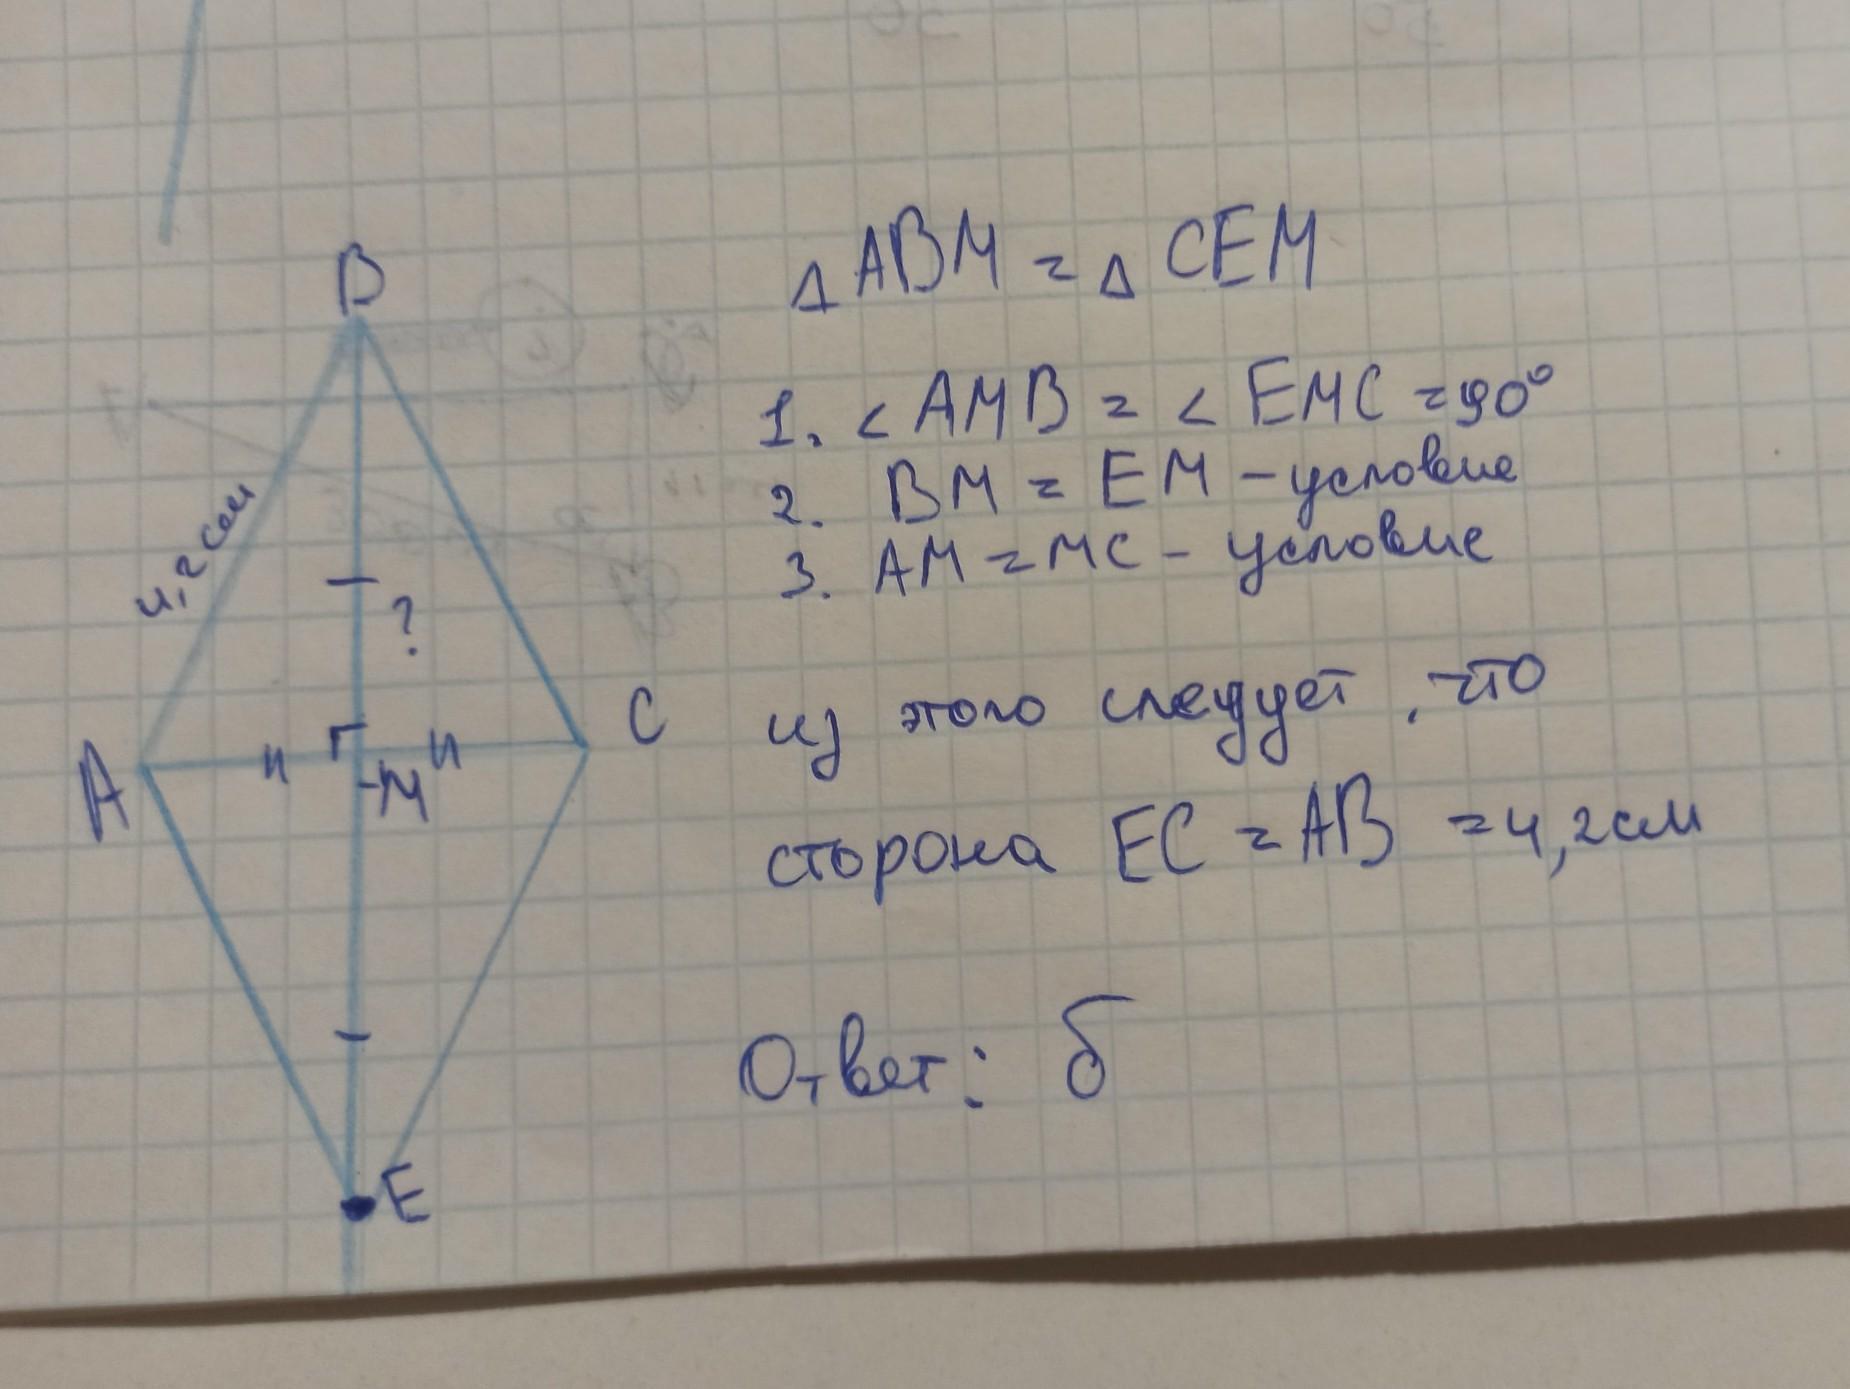 B
4,2 см
?
A
C
M
E
△ ABM = △ CEM
1. < AMB = < EMC = 90°
2. BM = EM - условие
3. AM = MC - условие
из этого следует, что
сторона EC = AB = 4,2 см
Ответ: б